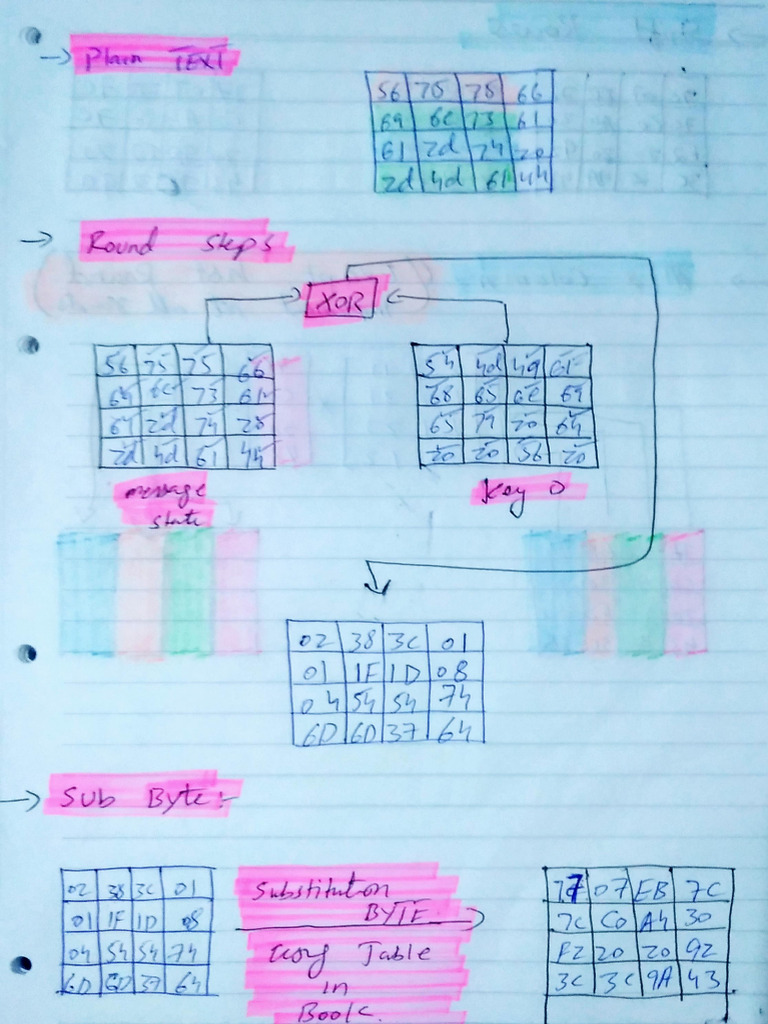 → Plain TEXT
56 75 75 66
69 6c 73 61
61 2d 74 20
2d 4d 61 44
→ Round Steps
XOR
56 75 75 66
69 6c 73 61
61 2d 74 20
2d 4d 61 44
54 4d 49 67
68 65 6e 69
65 79 20 64
20 20 56 20
message
state
Key 0
02 38 3C 01
01 1F 1D 08
04 54 54 74
6D 6D 37 64
→ Sub Byte:-
02 38 3C 01
01 1F 1D 08
04 54 54 74
6D 6D 37 64
Substitution
BYTE
Using Table
in
Book.
77 07 EB 7C
7C C0 A4 30
F2 20 20 92
3C 3C 9A 43